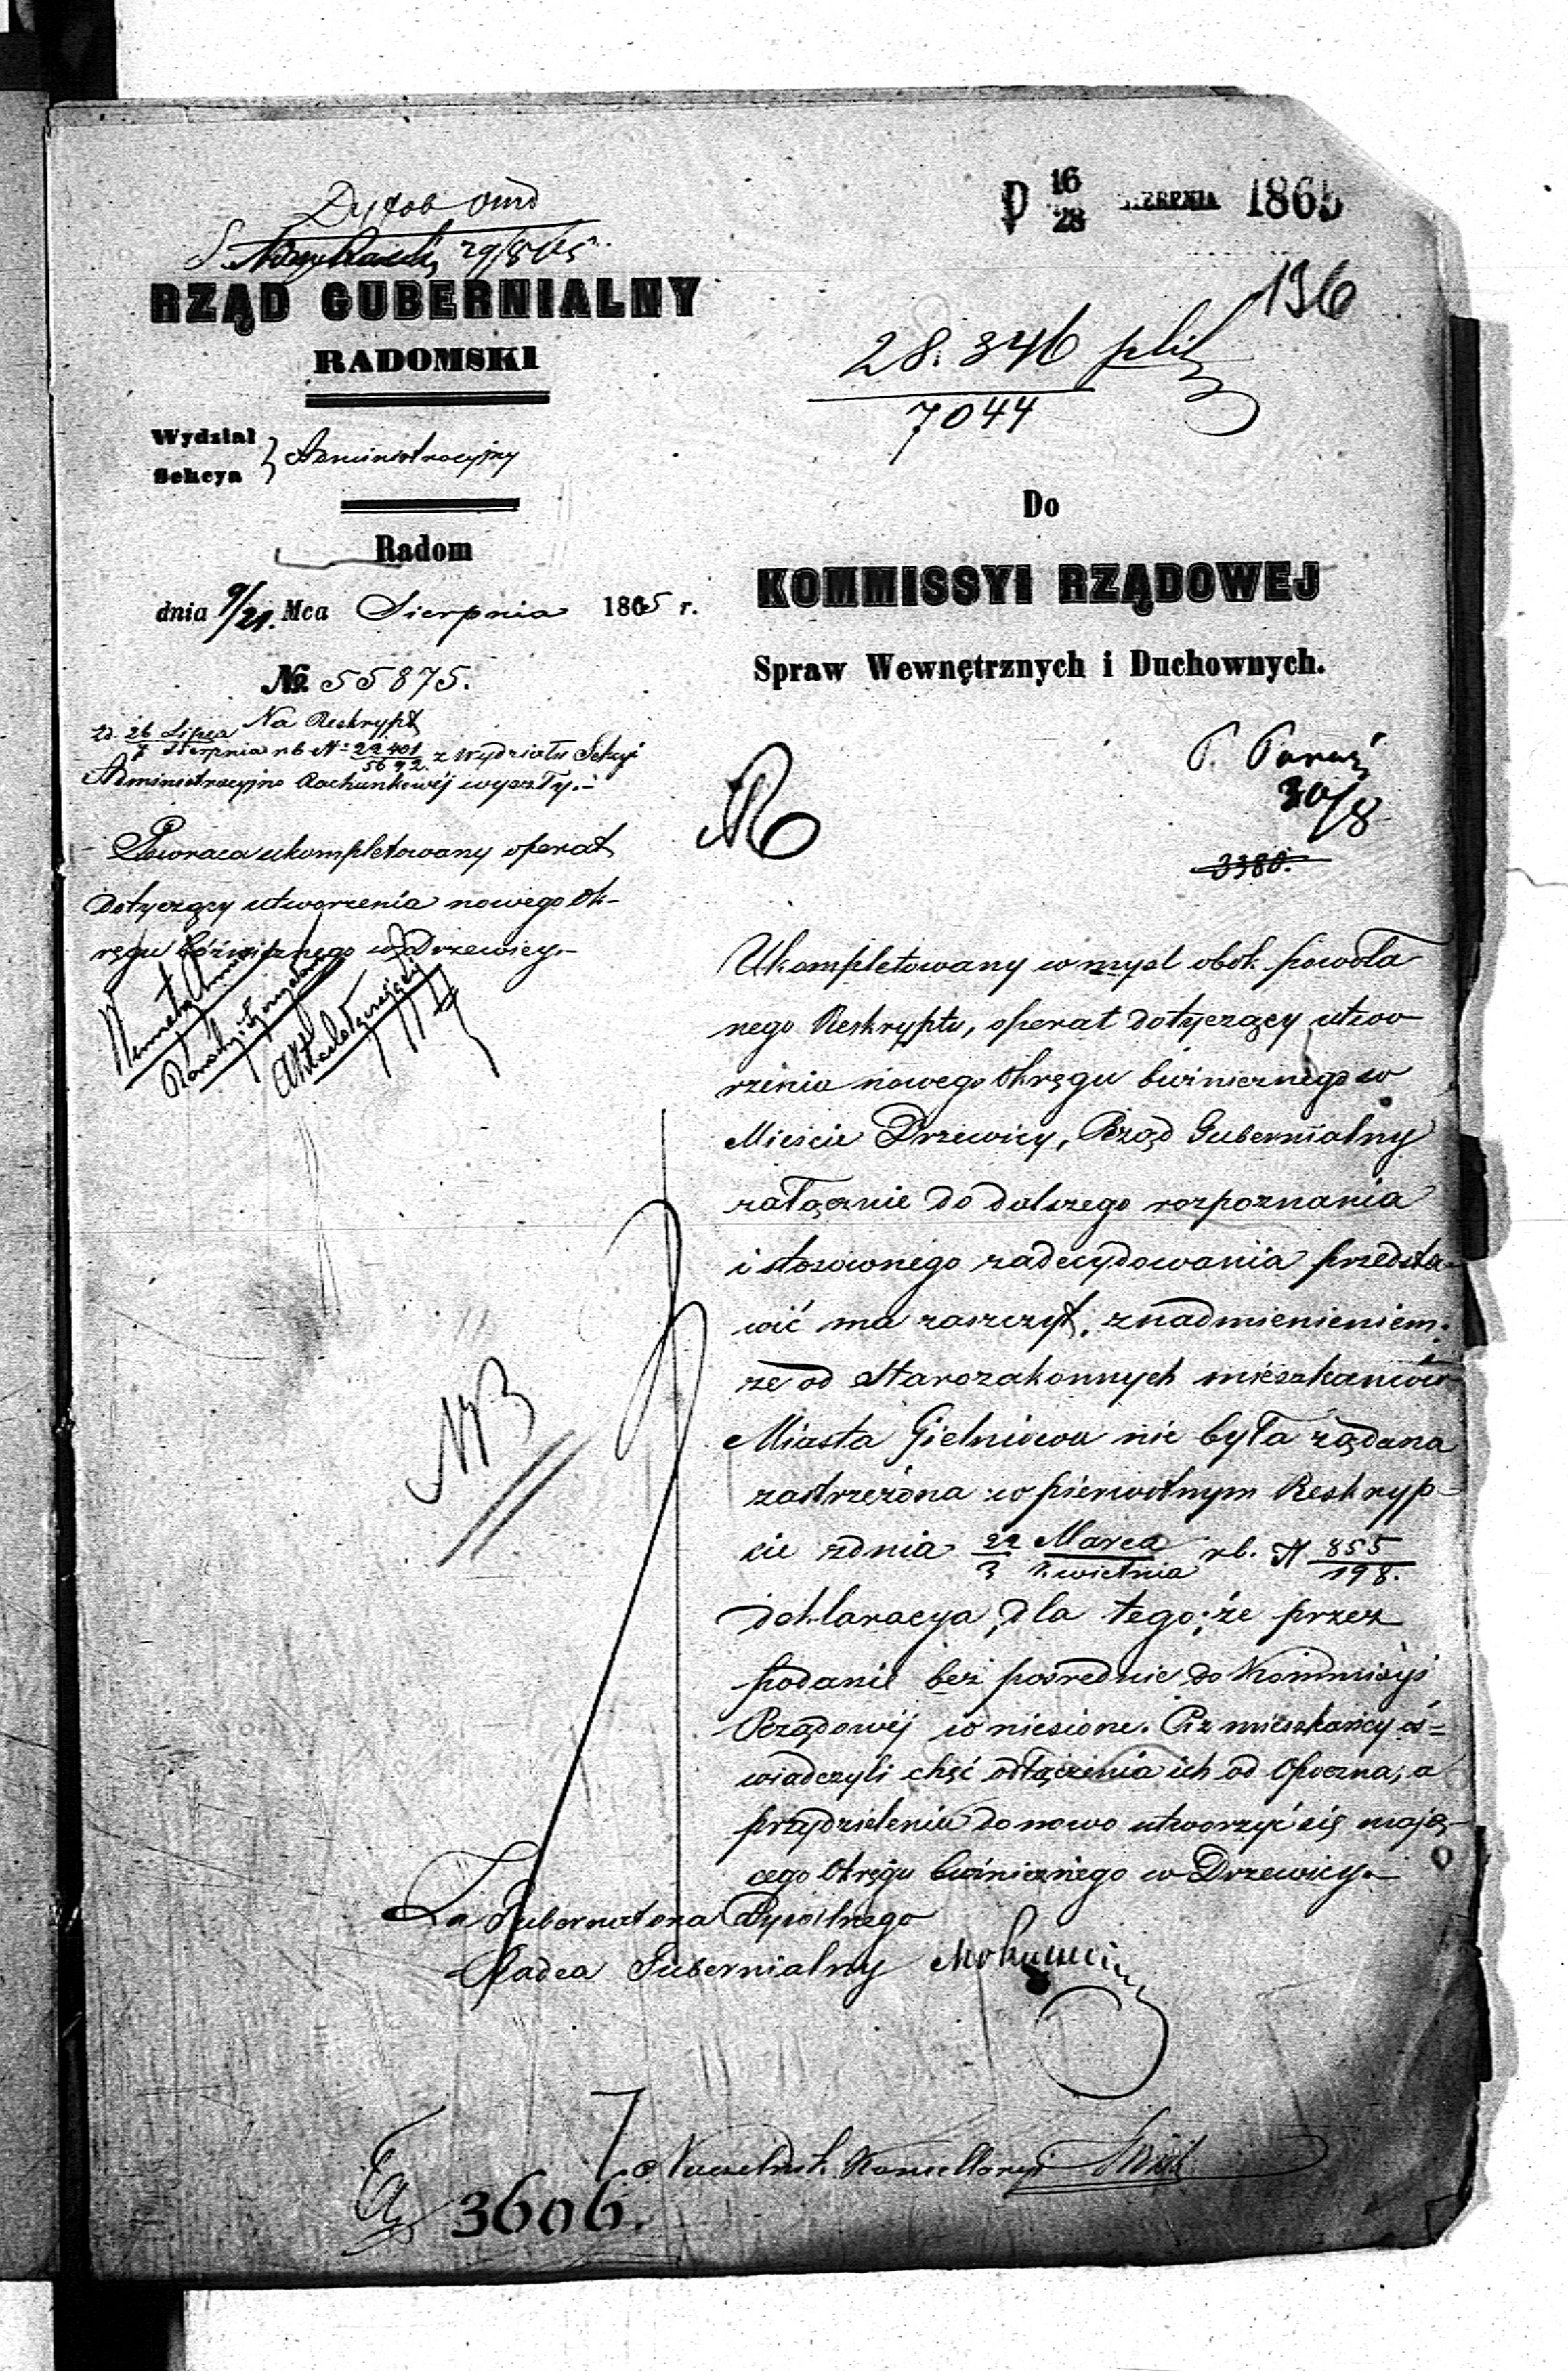 D 16/28 SIERPNIA 1865
136
29/8/65
RZĄD GUBERNIALNY
RADOMSKI
28.346
7044
Wydział
Sekcya } Administracyjny
Radom
dnia 9/21. Mca Sierpnia 1865 r.
№ 55875.
Do
KOMMISSYI RZĄDOWEJ
Spraw Wewnętrznych i Duchownych.
Na Reskrypt
zd. 26 Lipca
7 Sierpnia rb N: 22401/5692. z Wydziału Sekcyi
Administracyjno Rachunkowéj wyszły.-
Powraca ukompletowany operat
dotyczący utworzenia nowego Ok-
ręgu bóźnicznego w Drzewicy.-
P.
30/8
3380.
Ukompletowany w myśl obok powoła
nego Reskryptu, operat dotyczący utwo
rzenia nowego Okręgu bóźnicznego w
Mieście Drzewicy, Rząd Gubernialny
załącznie do dalszego rozpoznania
i stosownego zadecydowania przedsta-
wić ma zaszczyt, z nadmienieniem:
że od Starozakonnych mieszkańców
Miasta Gielniowa nie była żądana
zastrzeżona w pierwotnym Reskryp-
cie z dnia 22 Marca/3 Kwietnia rb. N 855/198.
deklaracya, dla tego; że przez
podanie bezpośrednie do Kommisyi
Rządowéj wniesione. Ciż mieszkańcy oś=
wiadczyli chęć odłączenia ich od Opoczna, a
przydzielenia do nowo utworzyć się mają-
cego Okręgu bóźnicznego w Drzewicy.-
NB
Za Gubernatora Cywilnego
Radca Gubernialny
Naczelnik Kancellaryi
3606.